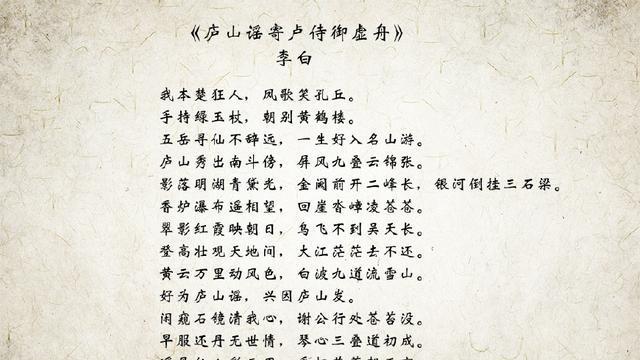 《庐山谣寄卢侍御虚舟》
李白
我本楚狂人，凤歌笑孔丘。
手持绿玉杖，朝别黄鹤楼。
五岳寻仙不辞远，一生好入名山游。
庐山秀出南斗傍，屏风九叠云锦张。
影落明湖青黛光，金阙前开二峰长，银河倒挂三石梁。
香炉瀑布遥相望，回崖沓嶂凌苍苍。
翠影红霞映朝日，鸟飞不到吴天长。
登高壮观天地间，大江茫茫去不还。
黄云万里动风色，白波九道流雪山。
好为庐山谣，兴因庐山发。
闲窥石镜清我心，谢公行处苍苔没。
早服还丹无世情，琴心三叠道初成。